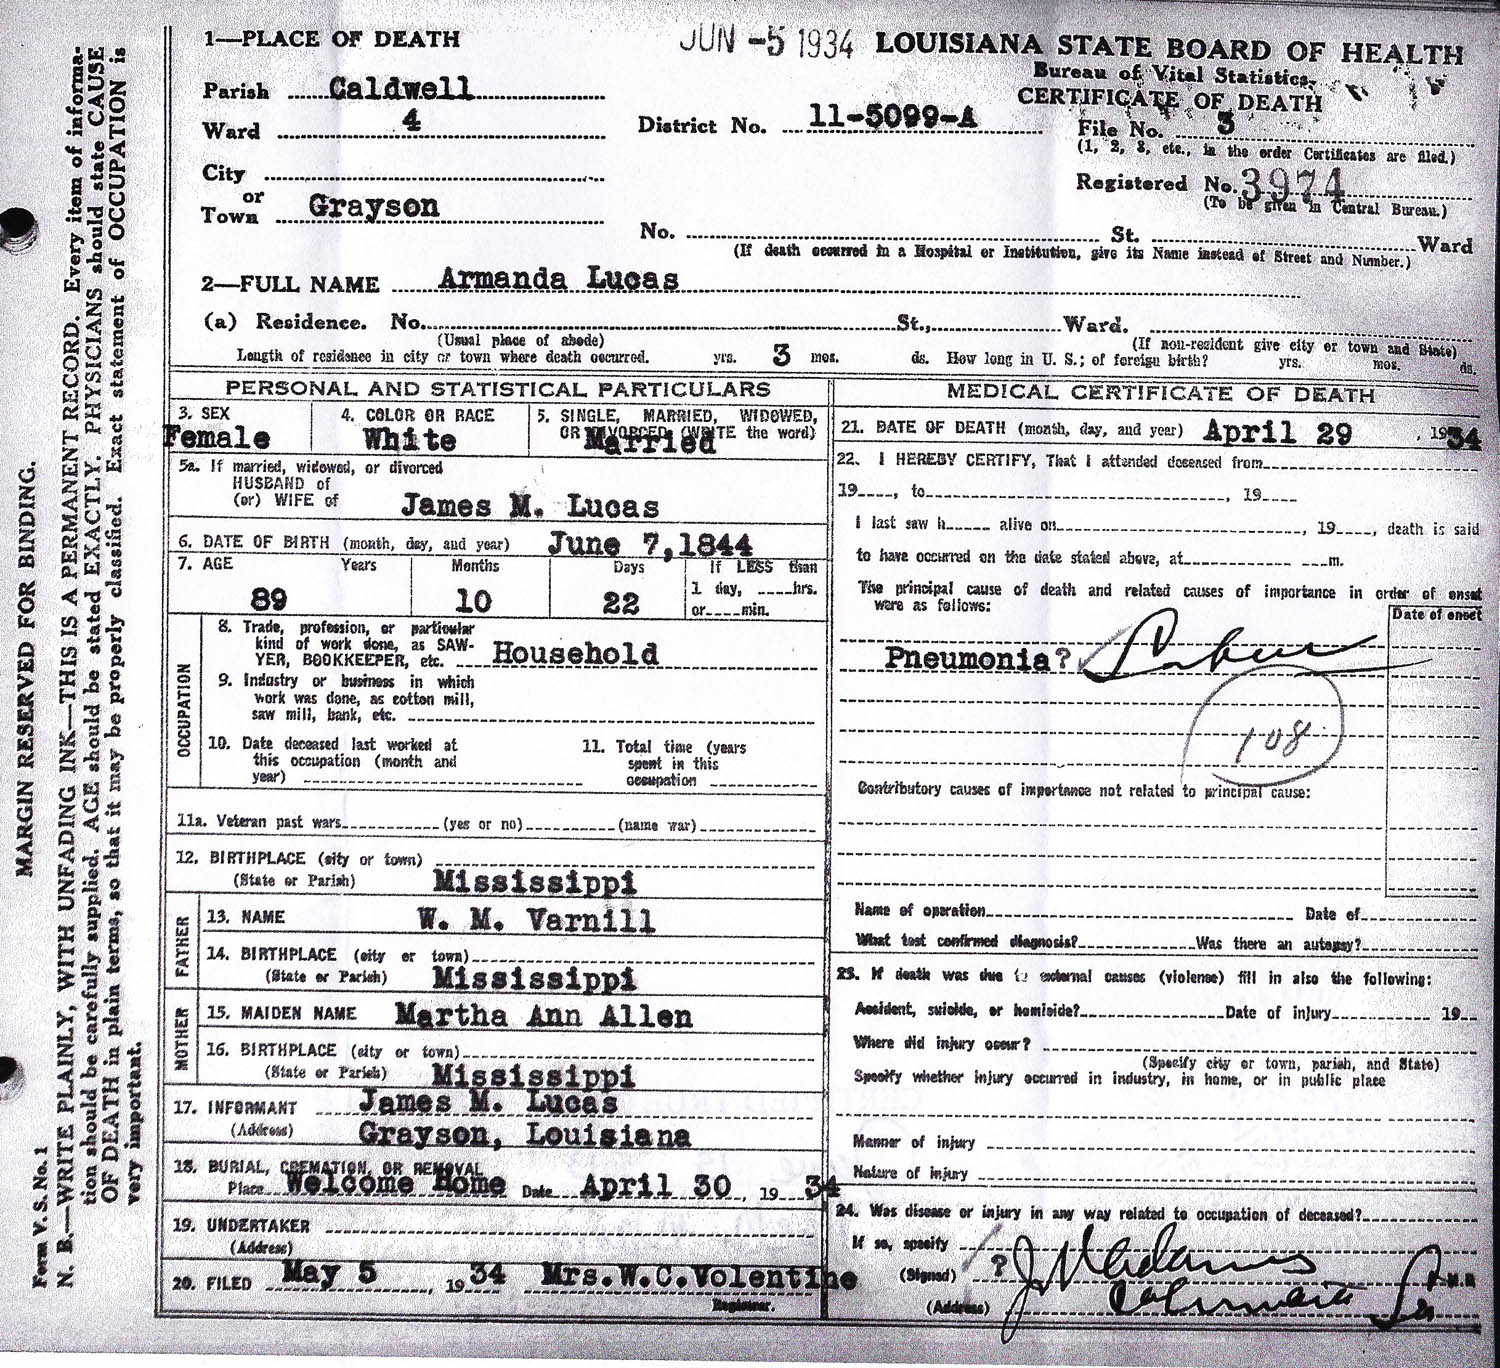 MARGIN RESERVED FOR BINDING.
N. B.—WRITE PLAINLY, WITH UNFADING INK—THIS IS A PERMANENT RECORD. Every item of informa-
tion should be carefully supplied. AGE should be stated EXACTLY. PHYSICIANS should state CAUSE
OF DEATH in plain terms, so that it may be properly classified. Exact statement of OCCUPATION is
very important.
Form V. S. No. 1
JUN -5 1934
LOUISIANA STATE BOARD OF HEALTH
Bureau of Vital Statistics
CERTIFICATE OF DEATH
1—PLACE OF DEATH
Parish Caldwell
Ward 4
District No. 11-5099-A
File No. 3
(1, 2, 3, etc., in the order Certificates are filed.)
City
or
Town Grayson
Registered No. 3974
(To be given in Central Bureau.)
No. St. Ward
(If death occurred in a Hospital or Institution, give its Name instead of Street and Number.)
2—FULL NAME Armanda Lucas
(a) Residence. No. St., Ward.
(Usual place of abode) (If non-resident give city or town and State)
Length of residence in city or town where death occurred. yrs. 3 mos. ds. How long in U. S.; of foreign birth? yrs. mos. ds.
PERSONAL AND STATISTICAL PARTICULARS
3. SEX
Female
4. COLOR OR RACE
White
5. SINGLE, MARRIED, WIDOWED,
OR DIVORCED (WRITE the word)
Married
5a. If married, widowed, or divorced
HUSBAND of
(or) WIFE of James M. Lucas
6. DATE OF BIRTH (month, day, and year) June 7, 1844
7. AGE Years Months Days If LESS than
1 day, hrs.
or min.
89 10 22
OCCUPATION
8. Trade, profession, or particular
kind of work done, as SAW-
YER, BOOKKEEPER, etc. Household
9. Industry or business in which
work was done, as cotton mill,
saw mill, bank, etc.
10. Date deceased last worked at
this occupation (month and
year)
11. Total time (years
spent in this
occupation
11a. Veteran past wars (yes or no) (name war)
12. BIRTHPLACE (city or town)
(State or Parish) Mississippi
FATHER
13. NAME W. M. Varnill
14. BIRTHPLACE (city or town)
(State or Parish) Mississippi
MOTHER
15. MAIDEN NAME Martha Ann Allen
16. BIRTHPLACE (city or town)
(State or Parish) Mississippi
17. INFORMANT James M. Lucas
(Address) Grayson, Louisiana
18. BURIAL, CREMATION, OR REMOVAL
Place Welcome Home Date April 30, 19 34
19. UNDERTAKER
(Address)
20. FILED May 5, 19 34 Mrs. W.C. Volentine
Registrar.
MEDICAL CERTIFICATE OF DEATH
21. DATE OF DEATH (month, day, and year) April 29, 1934
22. I HEREBY CERTIFY, That I attended deceased from
19 , to , 19
I last saw h alive on , 19 , death is said
to have occurred on the date stated above, at m.
The principal cause of death and related causes of importance in order of onset
were as follows:
Date of onset
Pneumonia?
108
Contributory causes of importance not related to principal cause:
Name of operation Date of
What test confirmed diagnosis? Was there an autopsy?
23. If death was due to external causes (violence) fill in also the following:
Accident, suicide, or homicide? Date of injury 19
Where did injury occur?
(Specify city or town, parish, and State)
Specify whether injury occurred in industry, in home, or in public place
Manner of injury
Nature of injury
24. Was disease or injury in any way related to occupation of deceased?
If so, specify
(Signed) ? Adams M.D.
(Address)